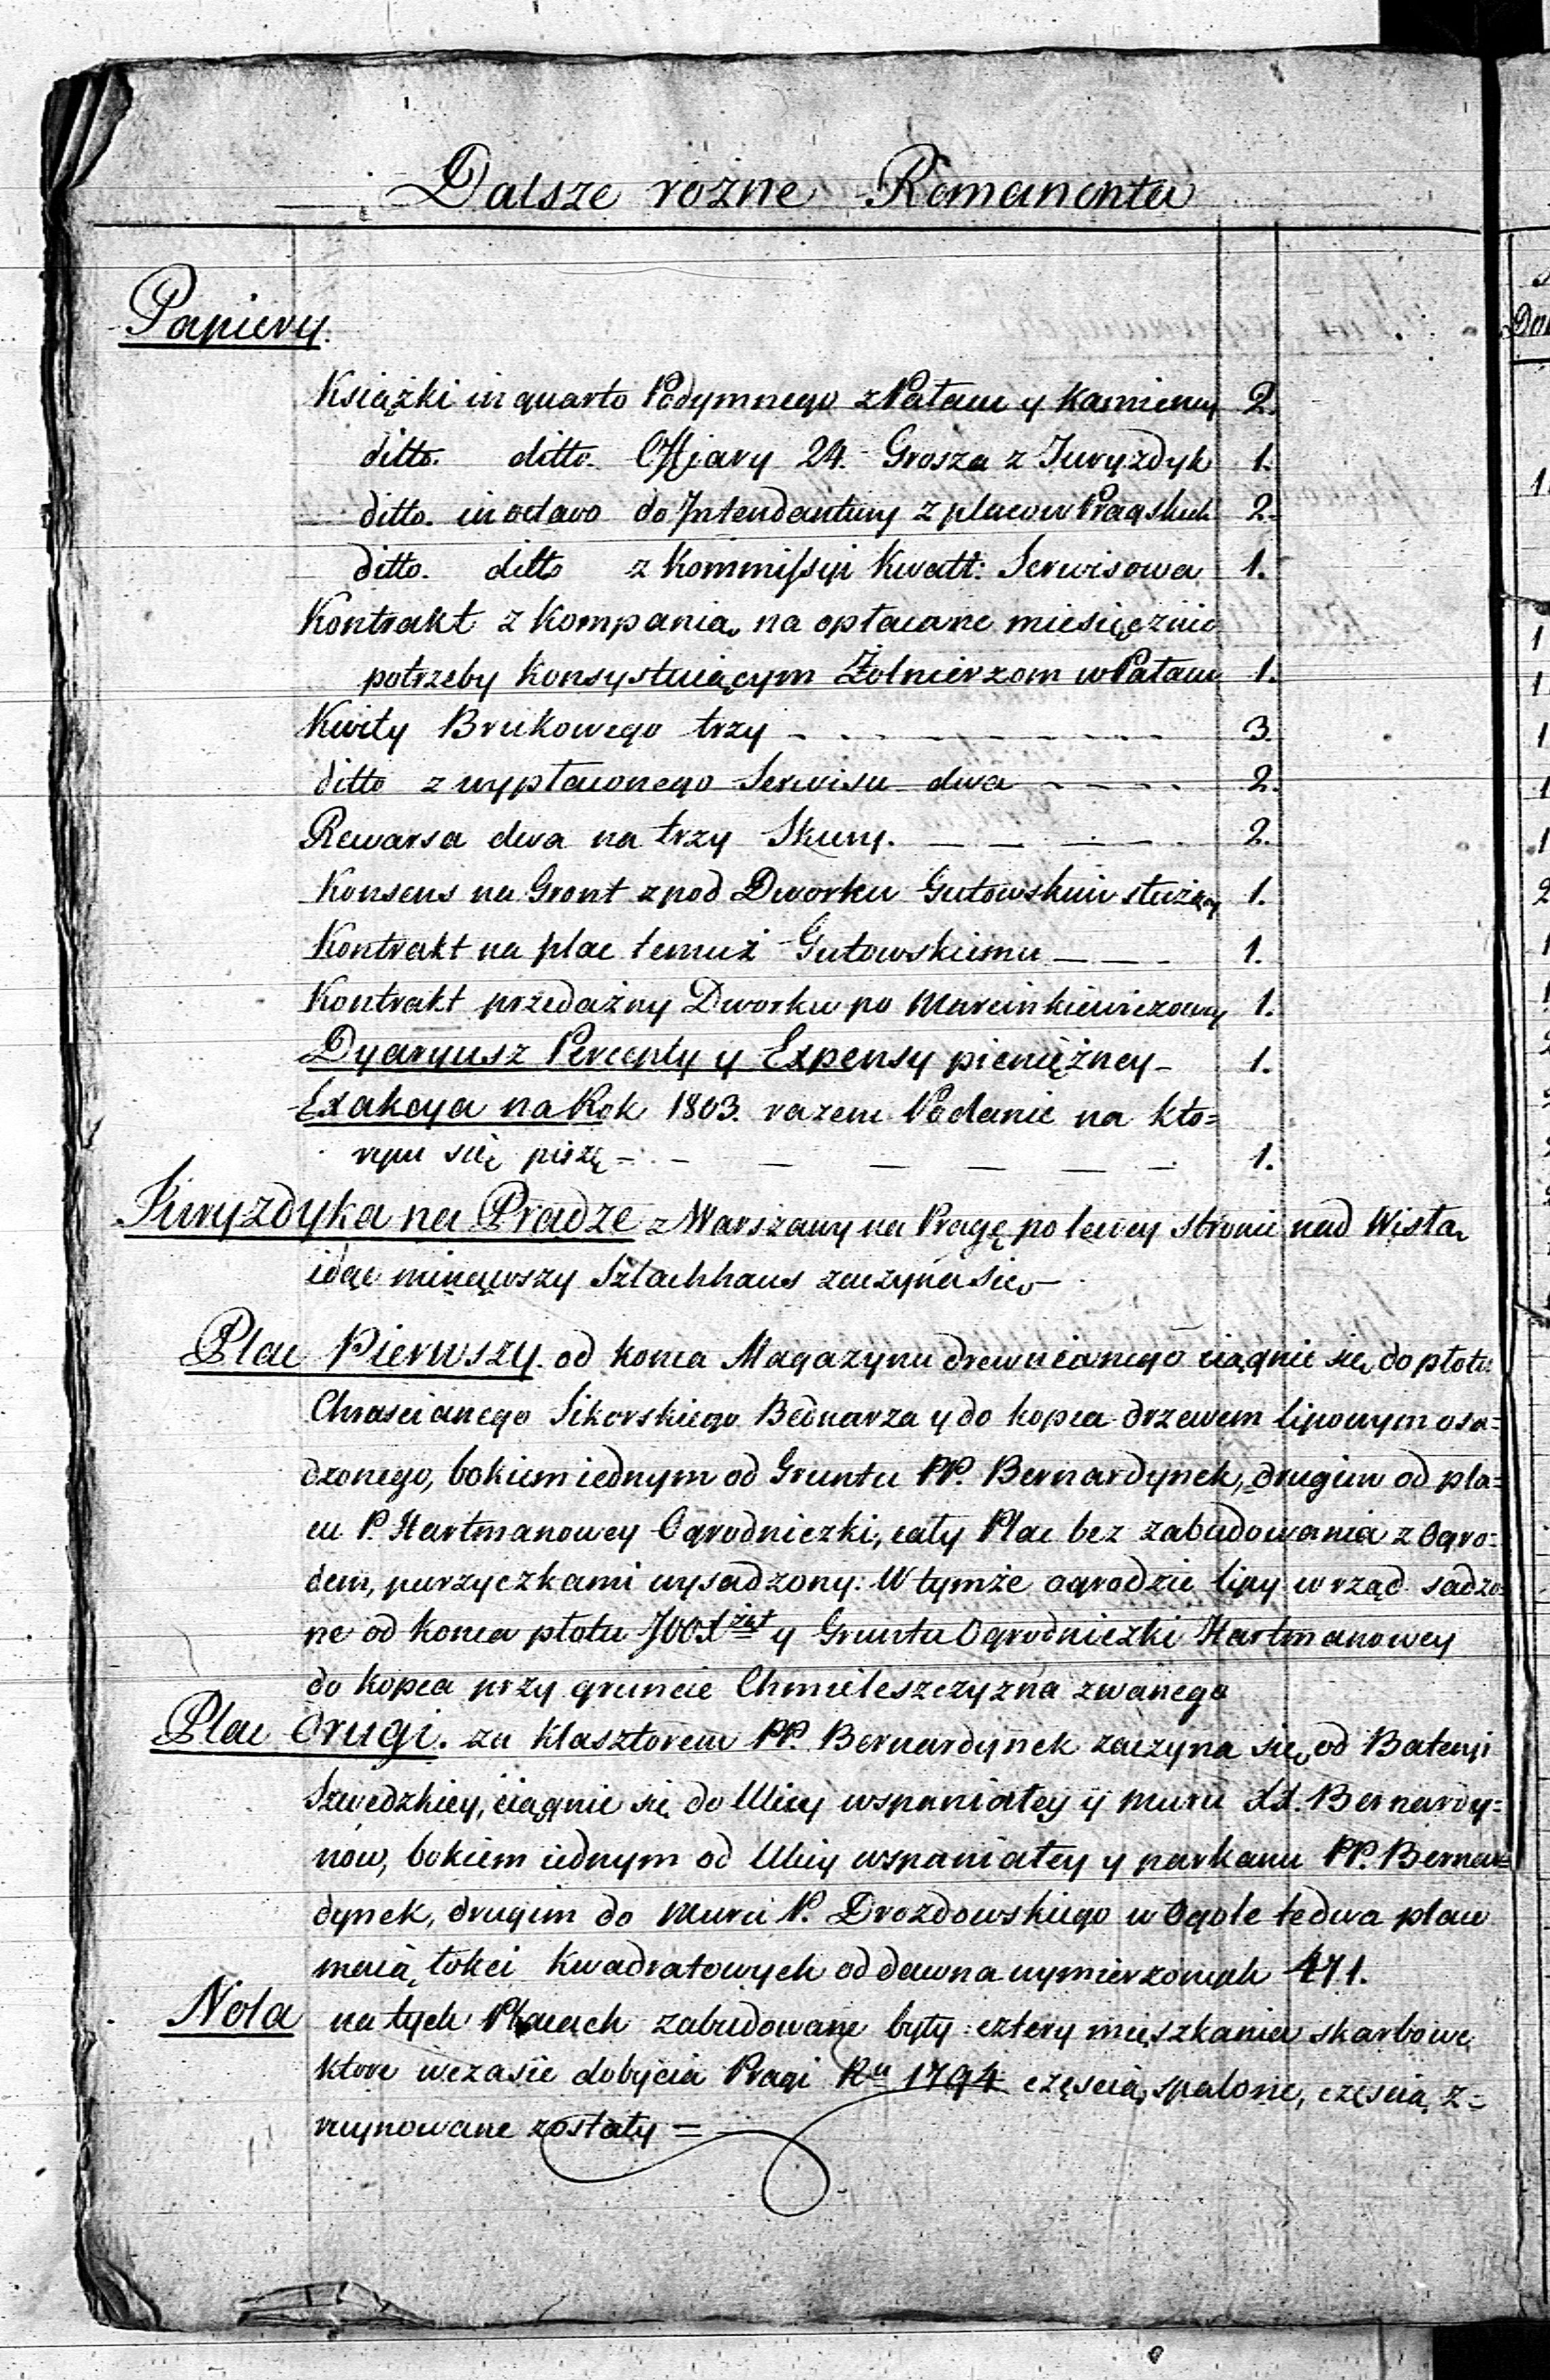 Dalsze rożne Remanenta
Papiery.
Książki in quarto Podymnego z Pałacu y Kamienicy 2.
ditto. ditto. Offiary 24. Grosza z Juryzdyk 1.
ditto. in octavo do Intendantury z placow Pragskich 2.
ditto. ditto z Kommissyi Kwatt: Serwisowa 1.
Kontrakt z Kompanią na opłacane miesięcznie
potrzeby Konsystuiącym Żołnierzom w Pałacu 1.
Kwity Brukowego trzy 3.
ditto z wypłaconego Serwisu dwa 2.
Rewersa dwa na trzy Skury. 2.
Konsens na Gront z pod Dworku Gutowskim służący 1.
Kontrakt na plac temuż Gutowskiemu 1.
Kontrakt przedażny Dworku po Marcinkiewiczowy 1.
Dyaryusz Percepty y Expensy pieniężney 1.
Exakcya na Rok 1803. razem Podanie na kto=
rym się piszę 1.
Juryzdyka na Pradze z Warszawy na Pragę po lewey stronie nad Wisłą
idąc minąwszy Szlachhaus zaczyna się
Plac Pierwszy. od konca Magazynu drewnianego ciągnie się do płotu
Chraścianego Sikorskiego Bednarza y do kopca drzewem lipowym osa=
dzonego, bokiem iednym od Gruntu PP. Bernardynek, drugim od pla=
cu P. Hartmanowey Ogrodniczki, cały Plac bez zabudowania z Ogro=
dem, purzyczkami wysadzony: W tymże ogrodzie lipy w rząd sadzo=
ne od konca płotu y Gruntu Ogrodniczki Hartmanowey
do kopca przy gruncie Chmieleszczyzna zwanego
Plac Drugi. za Klasztorem PP. Bernardynek zaczyna się od Bateryi
Szwedzkiey, ciągnie się do Ulicy wspaniałey y muru XX. Bernardy=
now, bokiem iednym od Ulicy wspaniałey y parkanu PP. Bernar=
dynek, drugim do muru P. Drozdowskiego w Ogole te dwa place
maią łokci Kwadratowych od dawna wymierzonych 471.
Nota na tych Placach zabudowane były cztery mieszkania skarbowe
ktore w czasie dobycia Pragi Ru 1794 częscią spalone, częscią z=
ruynowane zostały =